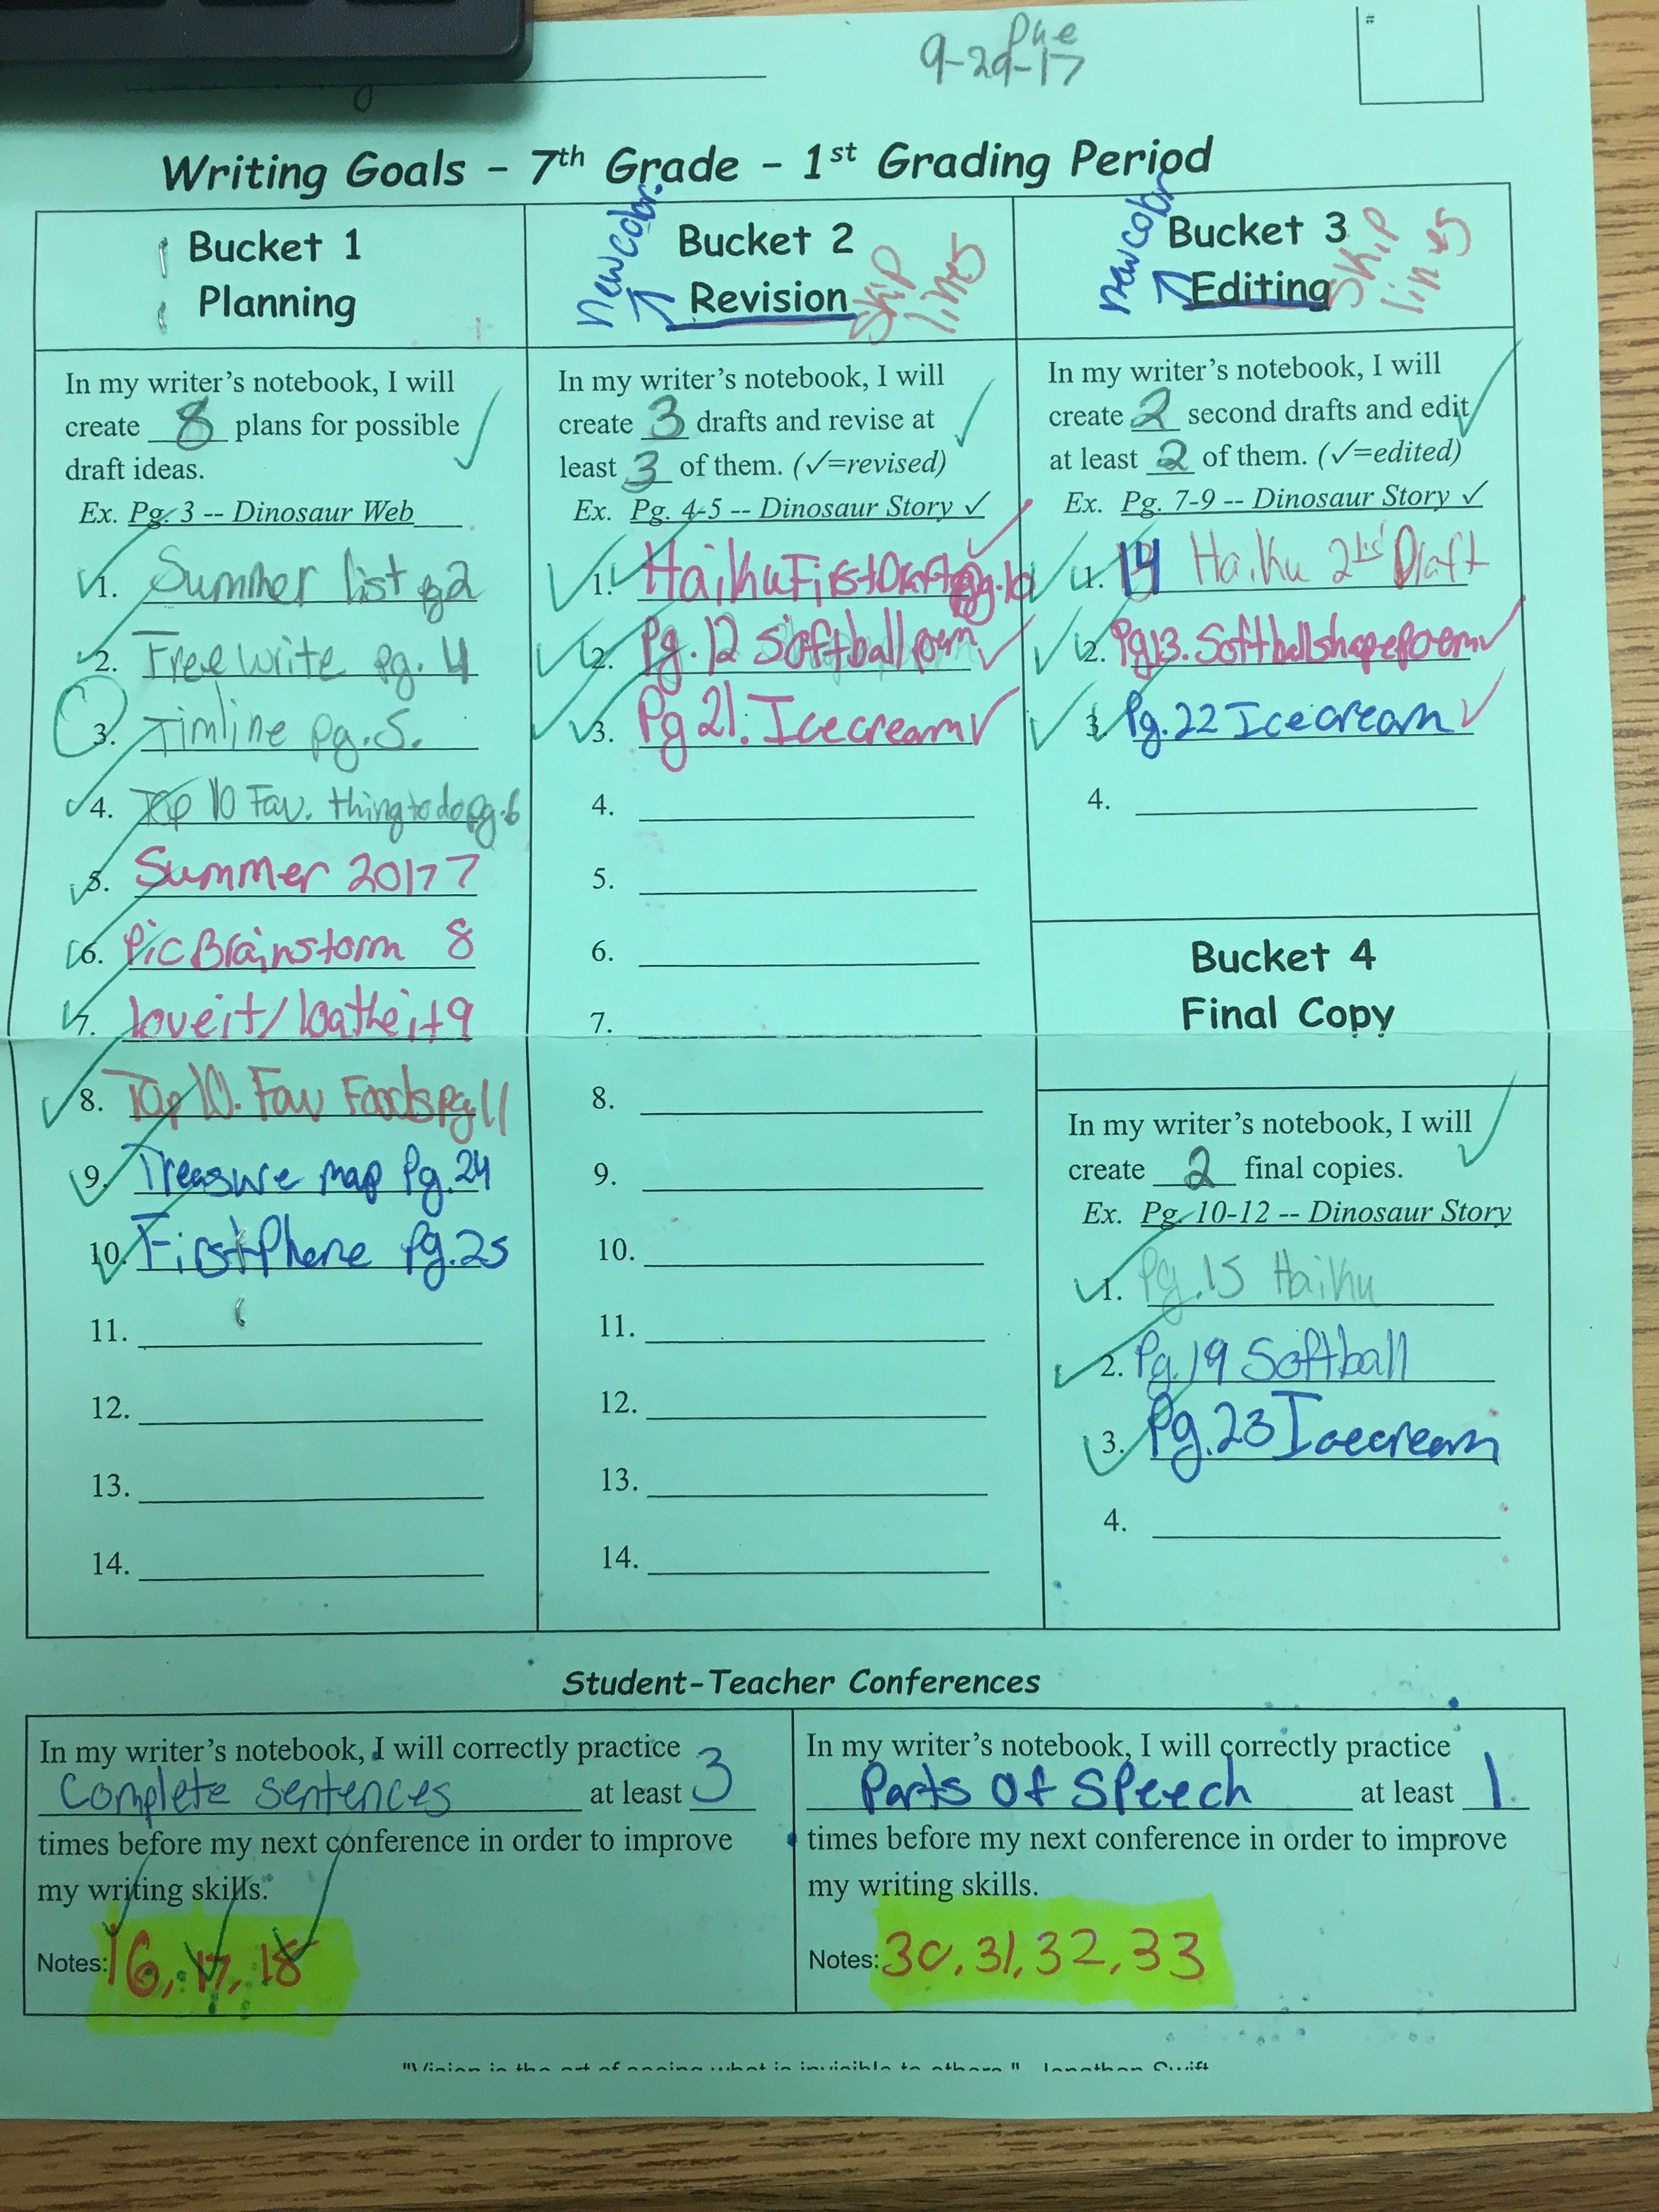 Due
9-29-17
#
Writing Goals - 7th Grade - 1st Grading Period
Bucket 1
Planning
In my writer's notebook, I will
create 8 plans for possible
draft ideas.
Ex. Pg. 3 -- Dinosaur Web
1. Summer list pg 2
2. Free write pg. 4
3. Timline pg. 5.
4. Top 10 Fav. thing to do pg. 6
5. Summer 2017 7
6. Pic Brainstorm 8
7. love it/loathe it 9
8. Top 10. Fav Foods pg 11
9. Treasure map Pg. 24
10. First Phone Pg. 25
11.
12.
13.
14.
New Color.
Bucket 2
Revision
Skip
lines
In my writer's notebook, I will
create 3 drafts and revise at
least 3 of them. (✓=revised)
Ex. Pg. 4-5 -- Dinosaur Story ✓
1. Haiku First Draft pg. 10
2. Pg. 12 Softball poem ✓
3. Pg 21. Icecream ✓
4.
5.
6.
7.
8.
9.
10.
11.
12.
13.
14.
new color
Bucket 3
Editing
Skip
lines
In my writer's notebook, I will
create 2 second drafts and edit
at least 2 of them. (✓=edited)
Ex. Pg. 7-9 -- Dinosaur Story ✓
1. 14 Haiku Draft
2. Pg 13. Softball shape poem ✓
3. Pg. 22 Icecream ✓
4.
Bucket 4
Final Copy
In my writer's notebook, I will
create 2 final copies.
Ex. Pg. 10-12 -- Dinosaur Story
1. Pg. 15 Haiku
2. Pg. 19 Softball
3. Pg. 23 Icecream
4.
Student-Teacher Conferences
In my writer's notebook, I will correctly practice
Complete sentences at least 3
times before my next conference in order to improve
my writing skills.
Notes: 16, 17, 18
In my writer's notebook, I will correctly practice
Parts Of Speech at least 1
times before my next conference in order to improve
my writing skills.
Notes: 30, 31, 32, 33
"Vision is the art of seeing what is invisible to others." Jonathan Swift